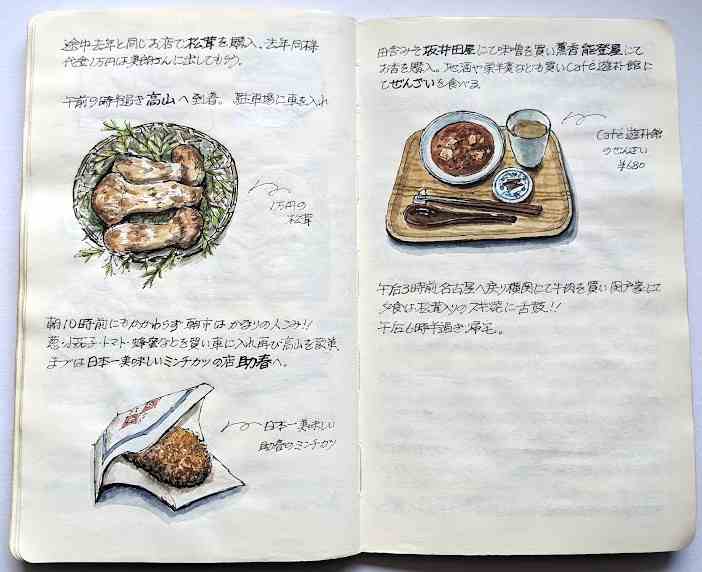 途中去年と同じお店で松茸を購入。去年同様
代金1万円は奥的さんに出してもらう。
午前9時半過ぎ高山へ到着。駐車場に車を入れ
1万円の
松茸
朝10時前にもかかわらず朝市はかなりの人ごみ!!
葱・小茄子・トマト・蜂蜜などを買い車に入れ再び高山を散策。
まずは日本一美味しいミンチカツの店助春へ。
日本一美味しい
助春のミンチカツ
田舎みそ坂井田屋にて味噌を買い薫香能登屋にて
お香を購入。地酒や栗羊羹なども買いCafé遊朴館に
てぜんざいを食べる。
Café遊朴館
のぜんざい
¥680
午后3時前名古屋へ戻り
にて牛肉を買い
にて
夕食は松茸入りのスキ焼に舌鼓!!
午后6時半過ぎ帰宅。